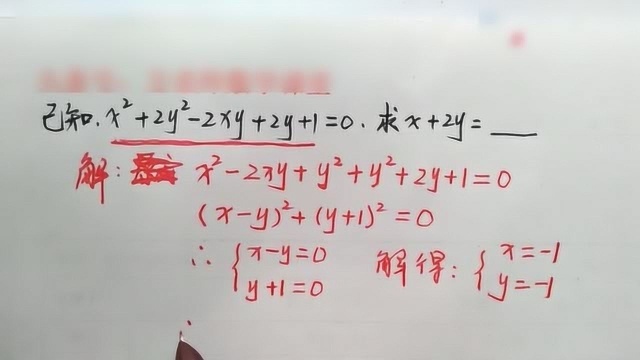 已知. x²+2y²-2xy+2y+1=0. 求x+2y=____
解: x²-2xy+y²+y²+2y+1=0
(x-y)²+(y+1)²=0
∴ { x-y=0 y+1=0 解得: { x=-1 y=-1
∴